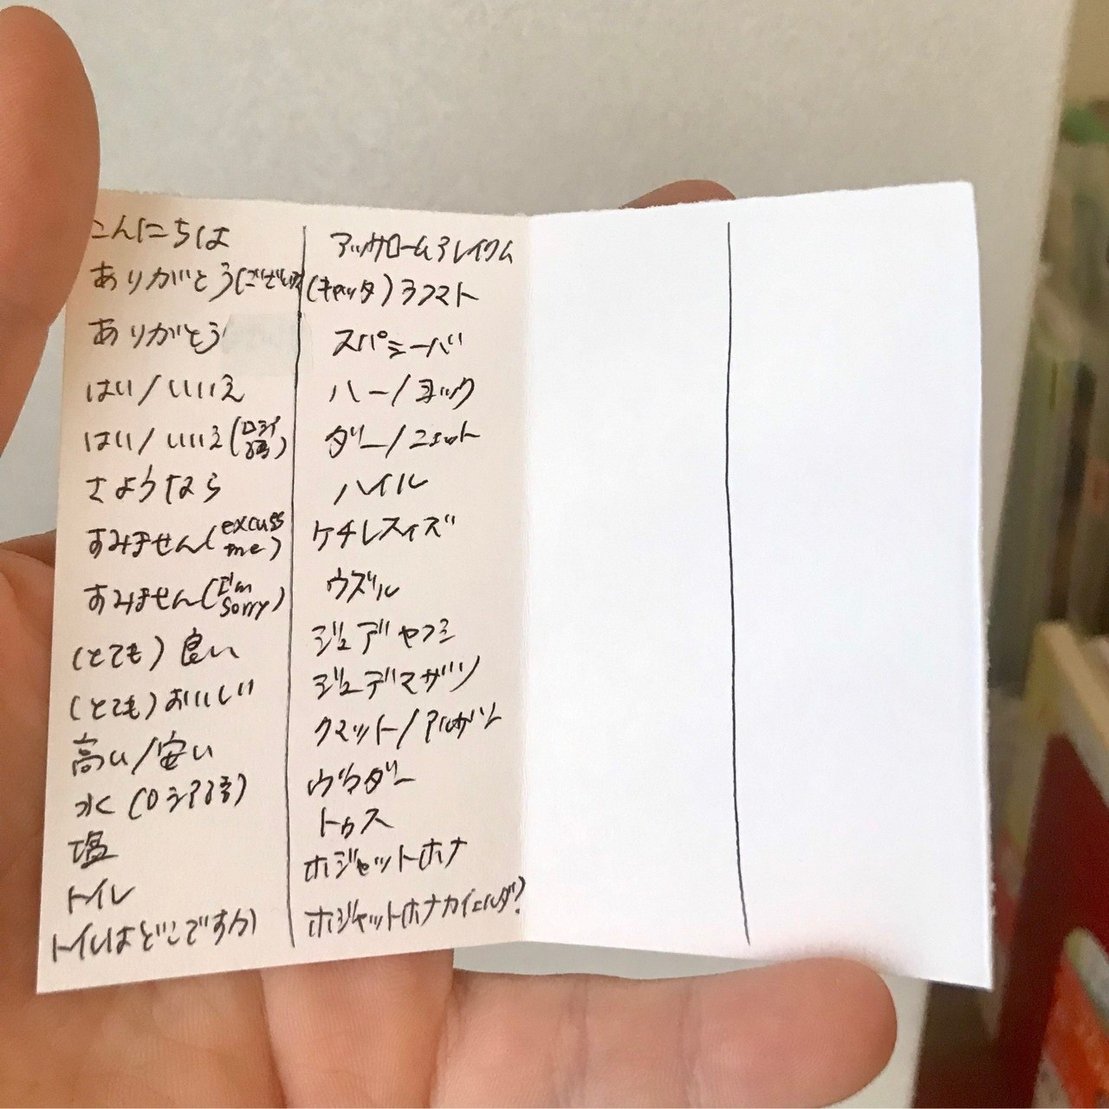 こんにちは アッサロームアレイクム
ありがとう(ございます (キャッタ)ラフマト
ありがとう スパシーバ
はい/いいえ ハー/ヨック
はい/いいえ(ロシア語) ダー/ニェット
さようなら ハイル
すみません(excuse me) ケチレスィズ
すみません(I'm sorry) ウズル
(とても)良い ジュデヤフシ
(とても)おいしい ジュデマザリ
高い/安い クマット/アルザン
水(ロシア語) ヴァダー
塩 トゥス
トイレ ホジャットホナ
トイレはどこですか ホジャットホナカイェルダ?